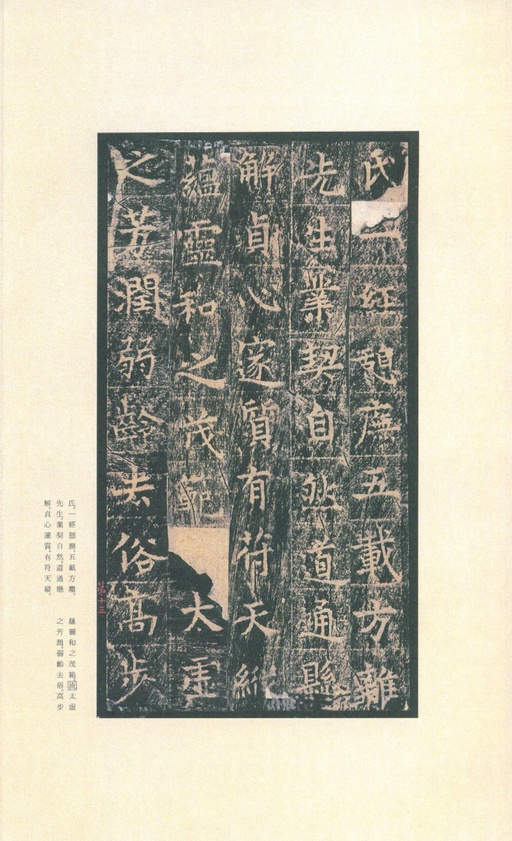 氏一經憩廡五載方離
先生業契自然道通縣
解貞心邃質有符天縱
蘊靈和之茂範太虛
之芳潤弱齡去俗高步
氏。一經憩廡，五載方離。
先生業契自然，道通懸
解，貞心邃質，有符天縱。
蘊靈和之茂範，太虛
之芳潤。弱齡去俗，高步